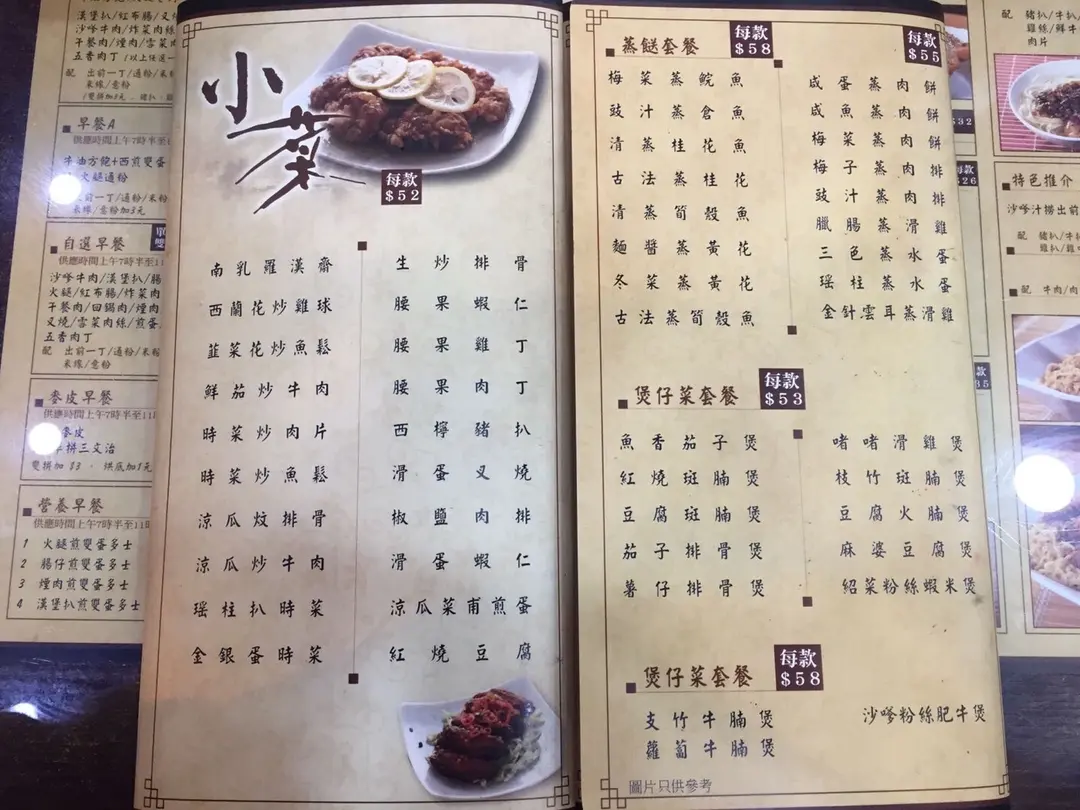 漢堡扒/紅布腸/叉
沙嗲牛肉/炸菜肉絲
午餐肉/煙肉/雪菜肉
五香肉丁(以上任選一
配 出前一丁/通粉/米粉
米線/意粉
早餐A
供應時間上午7時半至
牛油方飽+西煎雙蛋
火腿通粉
一丁/通粉/米粉
米線/意粉加3元
自選早餐
供應時間上午7時半至11
沙嗲牛肉/漢堡扒/腸
火腿/紅布腸/炸菜肉
午餐肉/回鍋肉/煙肉
叉燒/雪菜肉絲/煎蛋
五香肉丁
配 出前一丁/通粉/米粉
米線/意粉
麥皮早餐
供應時間上午7時半至11
麥皮
拼三文治
雙拼加$3 . 烘底加1元
營養早餐
供應時間上午7時半至11
1 火腿煎雙蛋多士
2 腸仔煎雙蛋多士
3 煙肉煎雙蛋多士
4 漢堡扒煎雙蛋多士
小菜
每款
$52
南乳羅漢齋
西蘭花炒雞球
韮菜花炒魚鬆
鮮茄炒牛肉
時菜炒肉片
時菜炒魚鬆
涼瓜炆排骨
涼瓜炒牛肉
瑶柱扒時菜
金銀蛋時菜
生炒排骨
腰果蝦仁
腰果雞丁
腰果肉丁
西檸豬扒
滑蛋叉燒
椒鹽肉排
滑蛋蝦仁
涼瓜菜甫煎蛋
紅燒豆腐
蒸餸套餐
每款
$58
梅菜蒸鯇魚
豉汁蒸倉魚
清蒸桂花魚
古法蒸桂花
清蒸筍殼魚
麵醬蒸黃花
冬菜蒸黃花
古法蒸筍殼魚
每款
$55
咸蛋蒸肉餅
咸魚蒸肉餅
梅菜蒸肉餅
梅子蒸肉排
豉汁蒸肉排
臘腸蒸滑雞
三色蒸水蛋
瑶柱蒸水蛋
金針雲耳蒸滑雞
煲仔菜套餐
每款
$53
魚香茄子煲
紅燒斑腩煲
豆腐斑腩煲
茄子排骨煲
薯仔排骨煲
啫啫滑雞煲
枝竹斑腩煲
豆腐火腩煲
麻婆豆腐煲
紹菜粉絲蝦米煲
煲仔菜套餐
每款
$58
支竹牛腩煲
蘿蔔牛腩煲
沙嗲粉絲肥牛煲
圖片只供參考
配 豬扒/牛扒
雞絲/鮮牛
肉片
特色推介
沙嗲汁撈出前
配 豬扒/牛扒
雞扒/雞
配 牛肉/肉